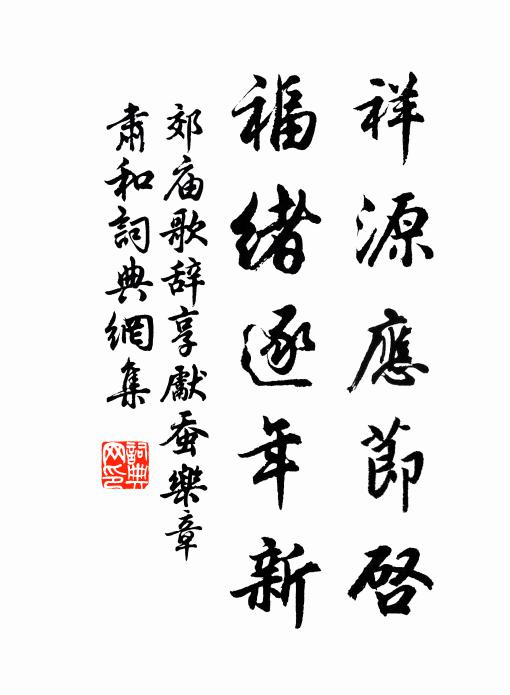 祥源應節啓
福緒逐年新
郊庙歌辞享獻蚕樂章
肅和詞典網集
詞典網印